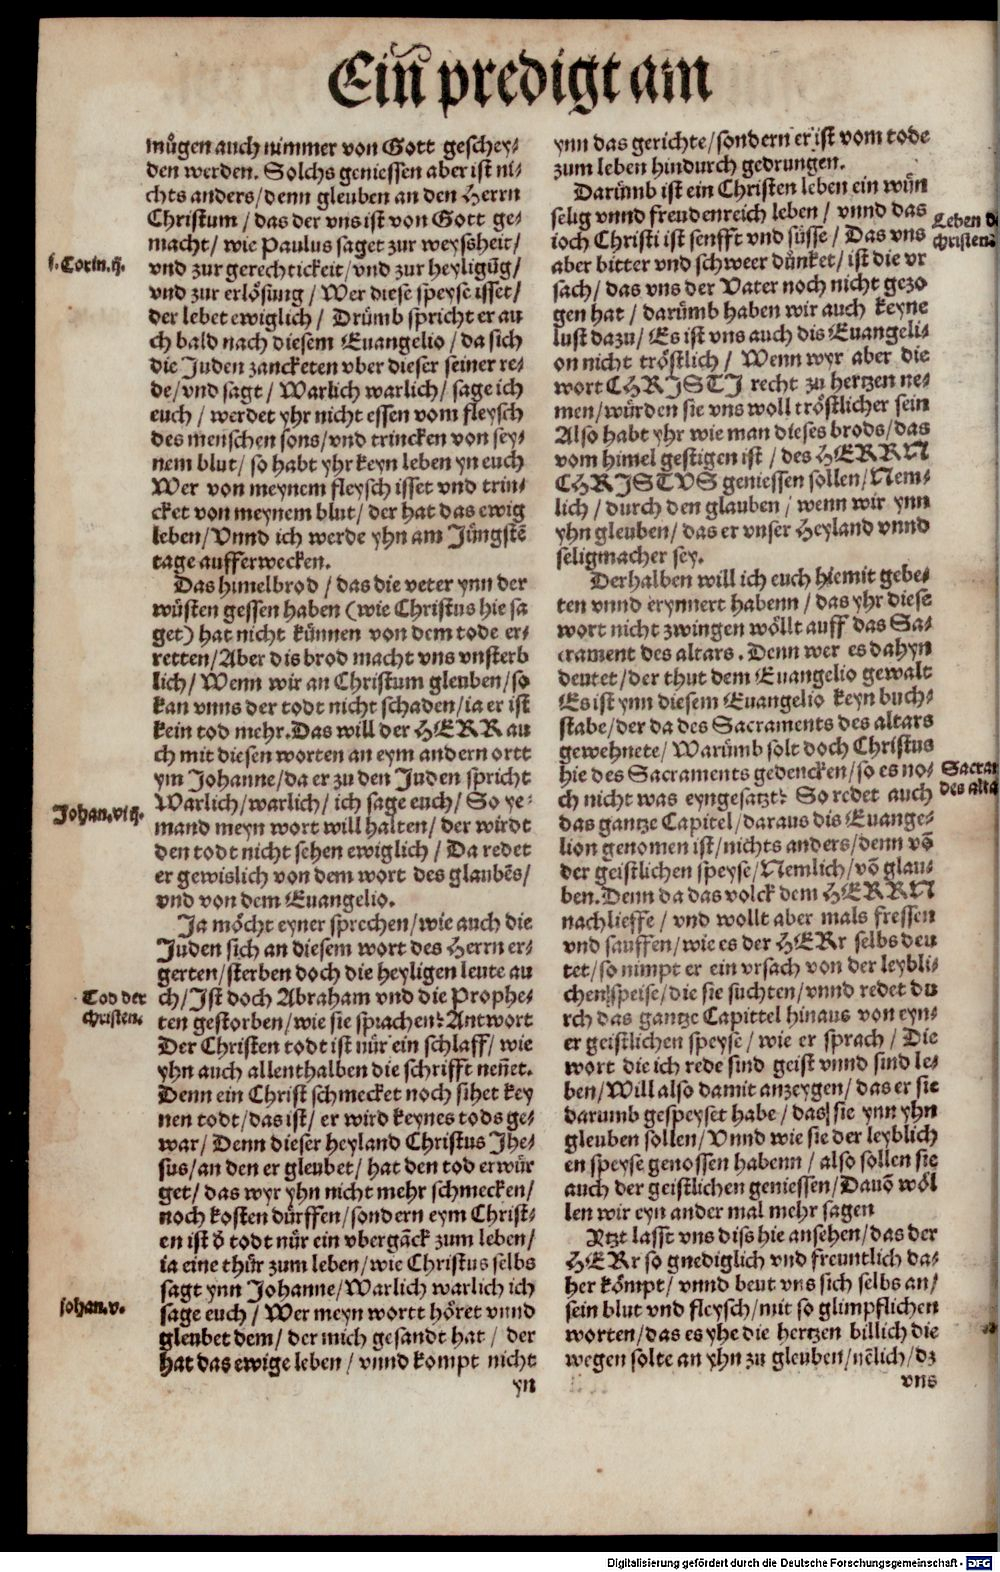 Ein predigt am
mügen auch nimmer von Gott geschey⸗
den werden. Solchs geniessen aber ist ni⸗
chts anders/denn gleuben an den Herrn
Christum / das der vns ist von Gott ge⸗
macht/ wie Paulus saget zur weyßheit/
j. Corin. ij.
vnd zur gerechtickeit/vnd zur heyligūg/
vnd zur erlösung / Wer diese speyse isset/
der lebet ewiglich / Drümb spricht er au
ch bald nach diesem Euangelio / da sich
die Juden zancketen vber dieser seiner re⸗
de/vnd sagt / Warlich warlich/ sage ich
euch / werdet yhr nicht essen vom fleysch
des menschen sons/vnd trincken von sey⸗
nem blut/ so habt yhr keyn leben yn euch
Wer von meynem fleysch isset vnd trin⸗
cket von meynem blut/ der hat das ewig
leben/Vnnd ich werde yhn am Jüngstē
tage aufferwecken.
Das himelbrod / das die veter ynn der
wüsten gessen haben (wie Christus hie sa
get) hat nicht künnen von dem tode er⸗
retten/Aber dis brod macht vns vnsterb
lich/ Wenn wir an Christum gleuben/so
kan vnns der todt nicht schaden/ia er ist
kein tod mehr.Das will der HERR au
ch mit diesen worten an eym andern ortt
ym Johanne/da er zu den Juden spricht
Warlich/warlich/ ich sage euch/ So ye⸗
Johan. viij.
mand meyn wort will halten/ der wirdt
den todt nicht sehen ewiglich / Da redet
er gewislich von dem wort des glaubēs/
vnd von dem Euangelio.
Ja möcht eyner sprechen/wie auch die
Juden sich an diesem wort des Herrn er⸗
gerten/sterben doch die heyligen leute au
Tod der
christen.
ch/Ist doch Abraham vnd die Prophe⸗
ten gestorben/wie sie sprachen? Antwort
Der Christen todt ist nür ein schlaff/ wie
yhn auch allenthalben die schrifft neñet.
Denn ein Christ schmecket noch sihet key
nen todt/das ist/ er wird keynes tods ge⸗
war/ Denn dieser heyland Christus Jhe⸗
sus/an den er gleubet/ hat den tod erwür
get/ das wyr yhn nicht mehr schmecken/
noch kosten dürffen/sondern eym Christ⸗
en ist ð todt nür ein vbergāck zum leben/
ia eine thür zum leben/wie Christus selbs
sagt ynn Johanne/Warlich warlich ich
johan. v.
sage euch/ Wer meyn wortt höret vnnd
gleubet dem/ der mich gesandt hat / der
hat das ewige leben / vnnd kompt nicht
yn
ynn das gerichte/sondern er ist vom tode
zum leben hindurch gedrungen.
Darümb ist ein Christen leben ein wün
selig vnnd freudenreich leben / vnnd das
Leben d
christen
ioch Christi ist senfft vnd süsse / Das vns
aber bitter vnd schweer dünket/ ist die vr
sach/ das vns der Vater noch nicht gezo
gen hat / darümb haben wir auch keyne
lust dazu/ Es ist vns auch dis Euangeli⸗
on nicht tröstlich / Wenn wyr aber die
wort CHRISTI recht zu hertzen ne⸗
men/würden sie vns woll tröstlicher sein
Also habt yhr wie man dieses brods/das
vom himel gestigen ist / des HERRN
CHRISTVS geniessen sollen/Nem⸗
lich / durch den glauben / wenn wir ynn
yhn gleuben/ das er vnser Heyland vnnd
seligmacher sey.
Derhalben will ich euch hiemit gebe⸗
ten vnnd erynnert habenn / das yhr diese
wort nicht zwingen wöllt auff das Sa⸗
crament des altars . Denn wer es dahyn
deutet/der thut dem Euangelio gewalt
Es ist ynn diesem Euangelio keyn buch⸗
stabe/der da des Sacraments des altars
gewehnete/ Warümb solt doch Christus
hie des Sacraments gedencken/so es no⸗
Sacra
des alta
ch nicht was eyngesatzt? So redet auch
das gantze Capitel/daraus dis Euange⸗
lion genomen ist/nichts anders/denn vō
der geistlichen speyse/Nemlich/vō glau⸗
ben. Denn da das volck dem HERRN
nachlieffe / vnd wollt aber mals fressen
vnd sauffen/wie es der HERr selbs deu
tet/so nimpt er ein vrsach von der leybli⸗
chen speise/die sie suchten/vnnd redet du
rch das gantze Capittel hinaus von eyn⸗
er geistlichen speyse / wie er sprach / Die
wort die ich rede sind geist vnnd sind le⸗
ben/Will also damit anzeygen/das er sie
darumb gespeyset habe / das sie ynn yhn
gleuben sollen/ Vnnd wie sie der leyblich
en speyse genossen habenn / also sollen sie
auch der geistlichen geniessen/ Dauō wöl
len wir eyn ander mal mehr sagen
Itzt lasst vns diss hie ansehen/das der
HERr so gnediglich vnd freuntlich da⸗
her kömpt/ vnnd beut vns sich selbs an/
sein blut vnd fleysch/mit so glimpflichen
worten/das es yhe die hertzen billich die
wegen solte an yhn zu gleuben/nēlich/dz
vns
Digitalisierung gefördert durch die Deutsche Forschungsgemeinschaft - DFG